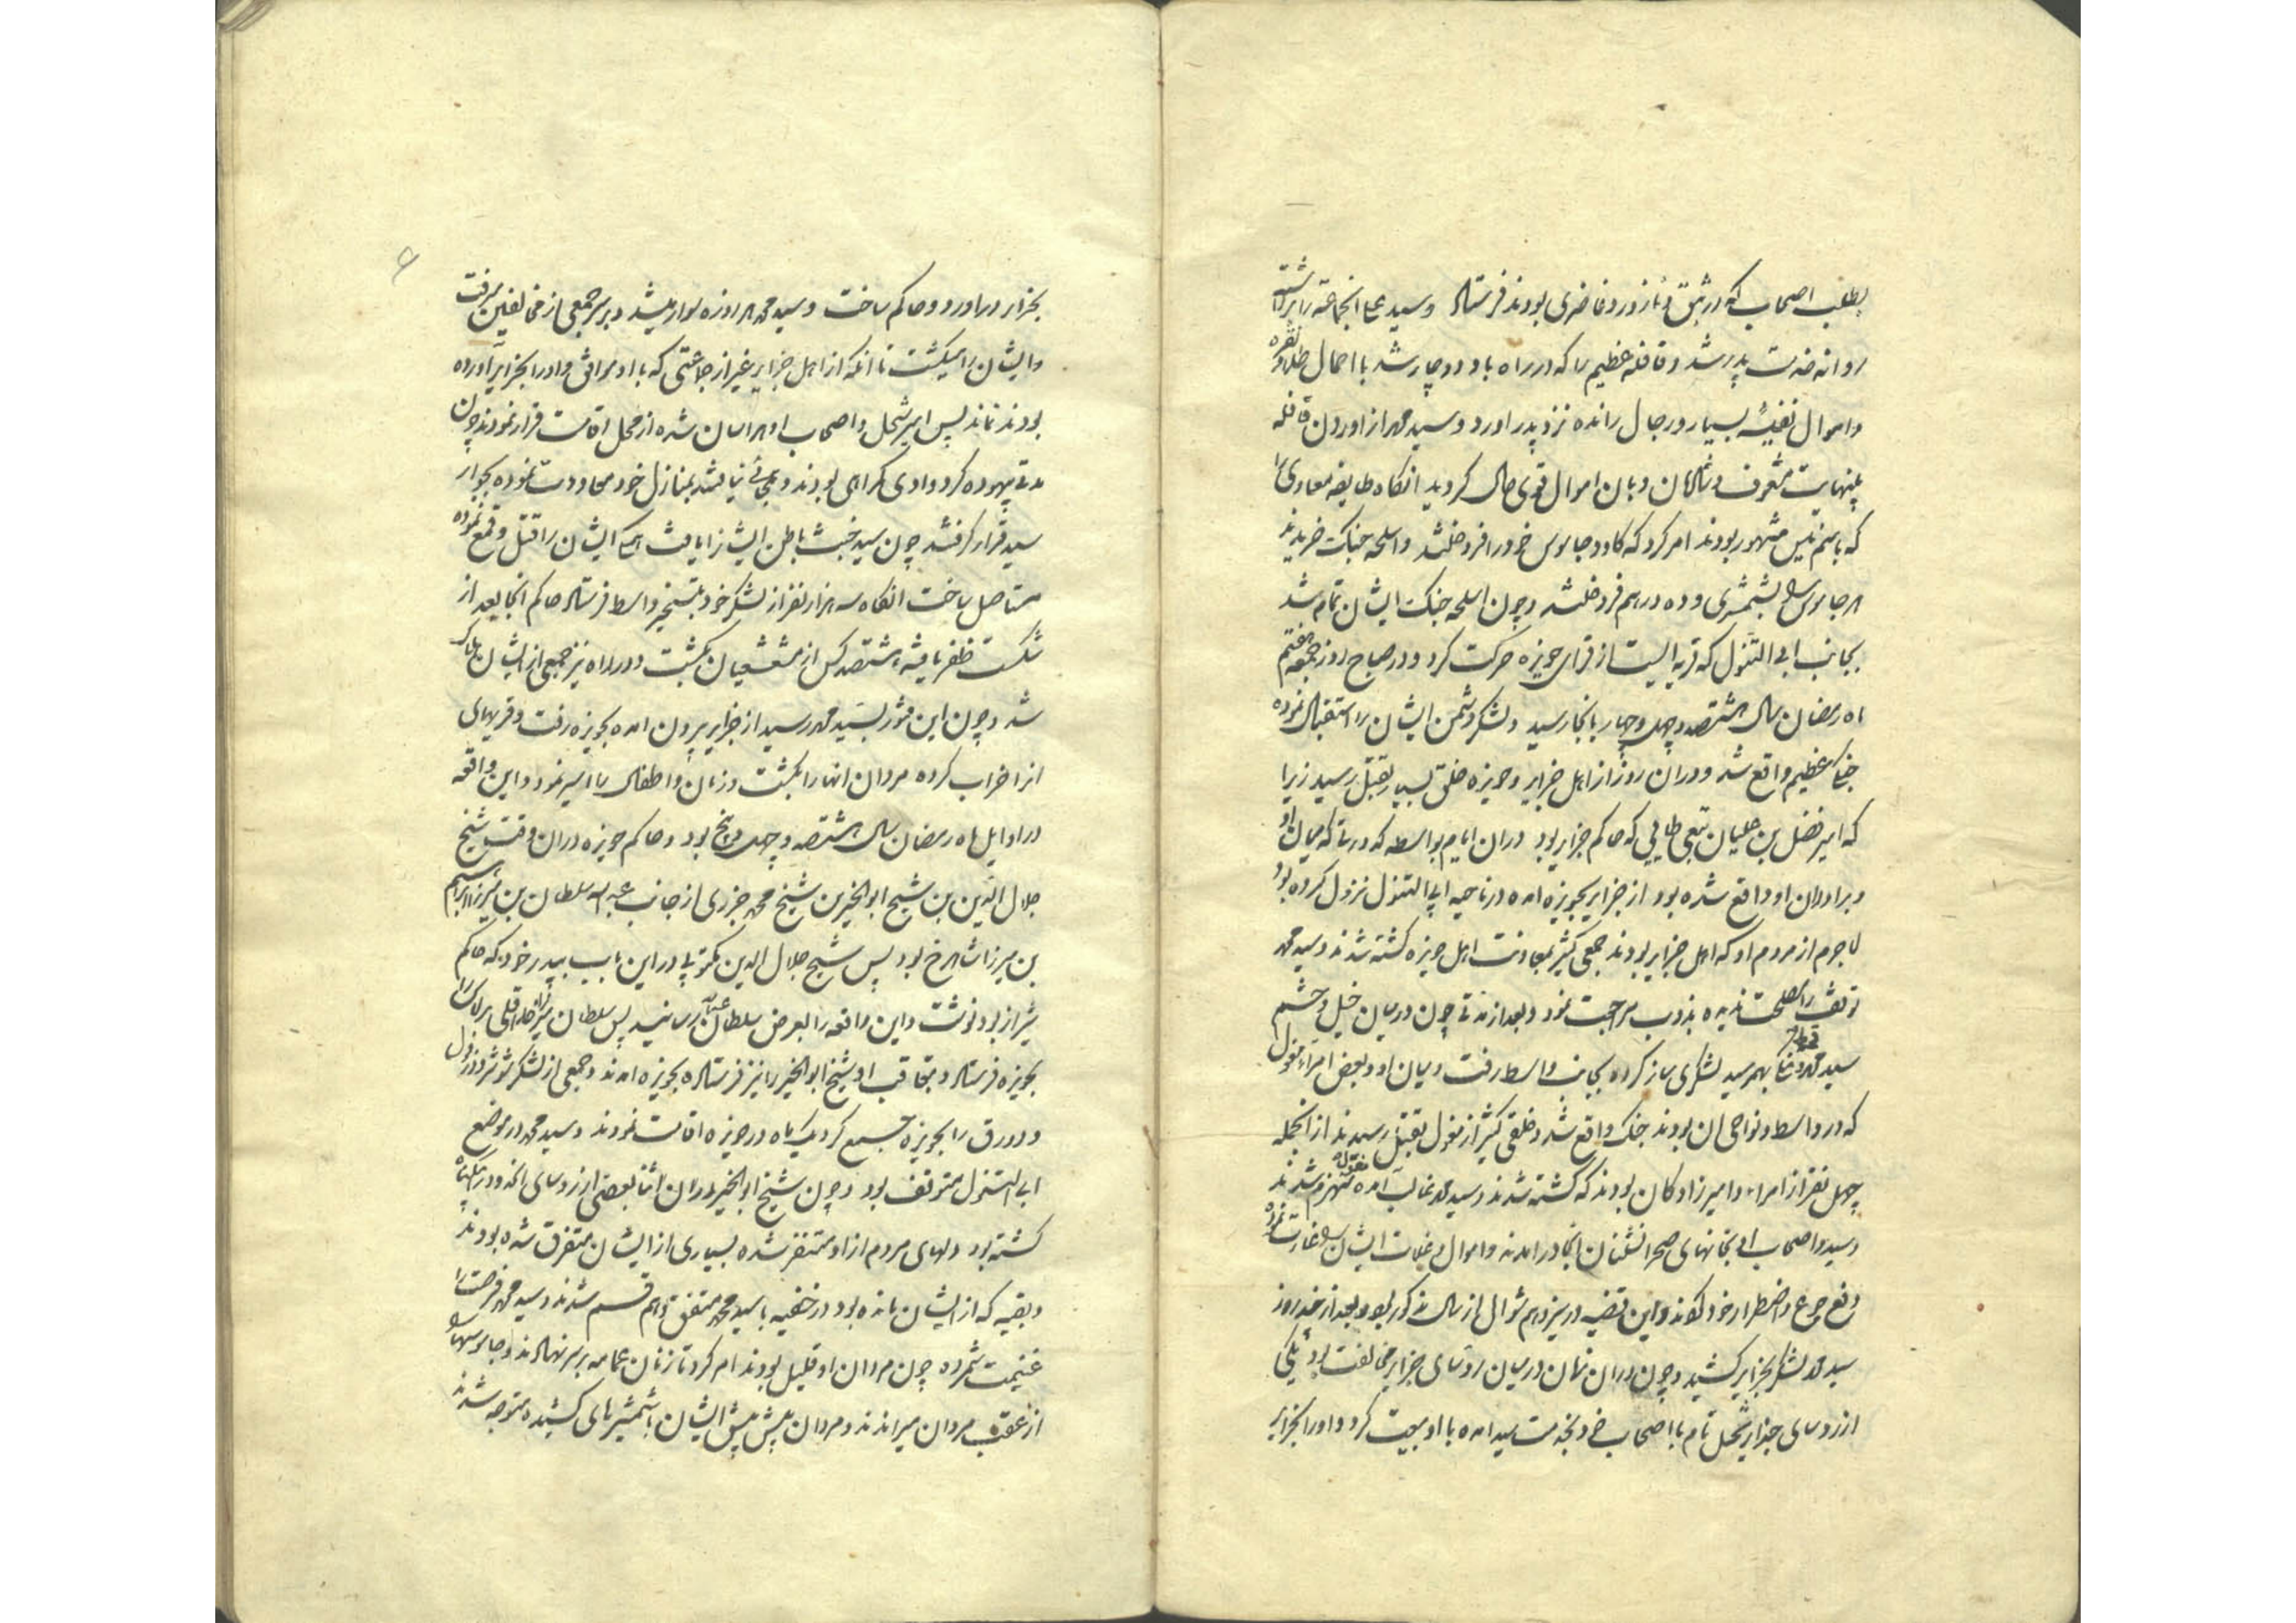 بطلب اصحاب که در شق و نازور و غاضری بودند فرستاد وسید علی انجماعة را برداشت
روانه خدمت پدر شد و قافله عظیم را که در راه باو دوچار شد با احمال طلا و نقره
و اموال نفیسهٔ بسیار و رجال رانده نزد پدر اورد و سید محمد از اوردن قافله
بینهایت مشعوف و شادمان و بان اموال قوی حال کردید انکاه طایفه معادی را
که باسم نیس مشهور بودند امر کرد که کاو و جاموس خود را فروختند و اسلحه جنک خریدند
هر جاموس را بشمشیری و ده درهم فروختند و چون اسلحه جنک ایشان تمام شد
بجانب ابی الشول که قریه ایست از قرای حویزه حرکت کرد و در صباح روز جمعه هفتم
ماه رمضان سال هشتصد و چهل و چهار بانجا رسید و لشکر دشمن ایشان را استقبال نموده
جنک عظیم واقع شد و دران روز از اهل جزایر و حویزه خلق بسیار بقتل رسید زیرا
که امیر فضل بن علیان تبعی طایی که حاکم جزایر بود دران ایام بواسطه کدورتی که میان او
و برادران او واقع شده بود از جزایر بحویزه امده در ناحیه ابی الشول نزول کرده بود
لاجرم از مردم او که اهل جزایر بودند جمعی کثیر بمعاونت اهل حویزه کشته شدند و سید محمد
توقف را مصلحت ندیده بدوب مراجعت نمود و بعد از مدتی چون در میان خیل و حشم
سید محمد قحط و غلا بهمرسید لشکری ساز کرده بجانب واسط رفت و میان او و بعض امراء مغول
که در واسط و نواحی ان بودند جنک واقع شد و خلقی کثیر از مغول بقتل رسیدند از انجمله
چهل نفر از امراء و امیرزادکان بودند که کشته شدند و سید محمد غالب امده مغول منهزم شدند
و سید و اصحاب او بخانهای صحرانشنان انجا درامدند و اموال و غلات ایشان را غارت نموده
رفع جوع و اضطرار خود کردند و این قضیه در سیزدهم شوال از سال مذکور بود و بعد از چند روز
سید محمد لشکر بجزایر کشید و چون دران زمان در میان روسای جزایر مخالفت بود یکی
از روسای جزایر شحل نام با اصحاب خود بخدمت سید امده با او بیعت کرد و او را بجزایر
بجزایر دراورد و حاکم ساخت و سید محمد هر روزه سوار میشد و بر سر جمعی از مخالفین میرفت
و ایشان را میکشت تا انکه از اهل جزایر غیر از جماعتی که با او موافق و او را بجزایر آورده
بودند نماند پس امیر شحل و اصحاب او هراسان شده از محل اقامت فرار نمودند چون
مدتی بیهوده کرد وادی کمراهی بودند و ملجائی نیافتند بمنازل خود معاودت نموده بجوار
سید قرار کرفتند چون سید خبث باطن ایشان را یافت همکی ایشان را قتل و قمع نموده
مستاصل ساخت انکاه سه هزار نفر از لشکر خود بتسخیر واسط فرستاد حاکم انجا بعد از
شکست ظفر یافته هشتصد کس از مشعشعیان بکشت و در راه نیز جمعی از ایشان هلاک
شد و چون این خبر بسید محمد رسید از جزایر بیرون امده بحویزه رفت و قریهای
انرا خراب کرده مردان انها را بکشت و زنان و اطفال را اسیر نمود و این واقعه
در اوایل ماه رمضان سال هشتصد و چهل و پنج بود و حاکم حویزه دران وقت شیخ
جلال الدین بن شیخ ابوالخیر بن شیخ محمد جزری از جانب عبدالله سلطان بن میرزا ابراهیم
بن میرزا شاهرخ بود پس شیخ جلال الدین مکتوبی در این باب بپدر خود که حاکم
شیراز بود نوشت و این واقعه را بعرض سلطان عبدالله رسانید پس سلطان میرزا خدا قلی برلاس را
بحویزه فرستاد و بتعاقب او شیخ ابوالخیر را نیز فرستاد بحویزه امدند و جمعی از لشکر شوشتر و دزفول
و دورق را بحویزه جمع کرد یک ماه در حویزه اقامت نمودند و سید محمد در موضع
ابی الشول متوقف بود و چون شیخ ابوالخیر دران اثنا بعضی از روسای انحدود را بیکناه
کشته بود دلهای مردم از او متنفر شده بسیاری از ایشان متفرق شده بودند
و بقیه که از ایشان مانده بود در خفیه با سید محمد متفق و هم قسم شدند و سید محمد فرصت را
غنیمت شمرده چون مردان او قلیل بودند امر کرد تا زنان عمامه بر سر نهادند و جاموسها را
از عقب مردان میراندند و مردان پیش پیش ایشان باشمشیرهای کشیده متوجه شدند